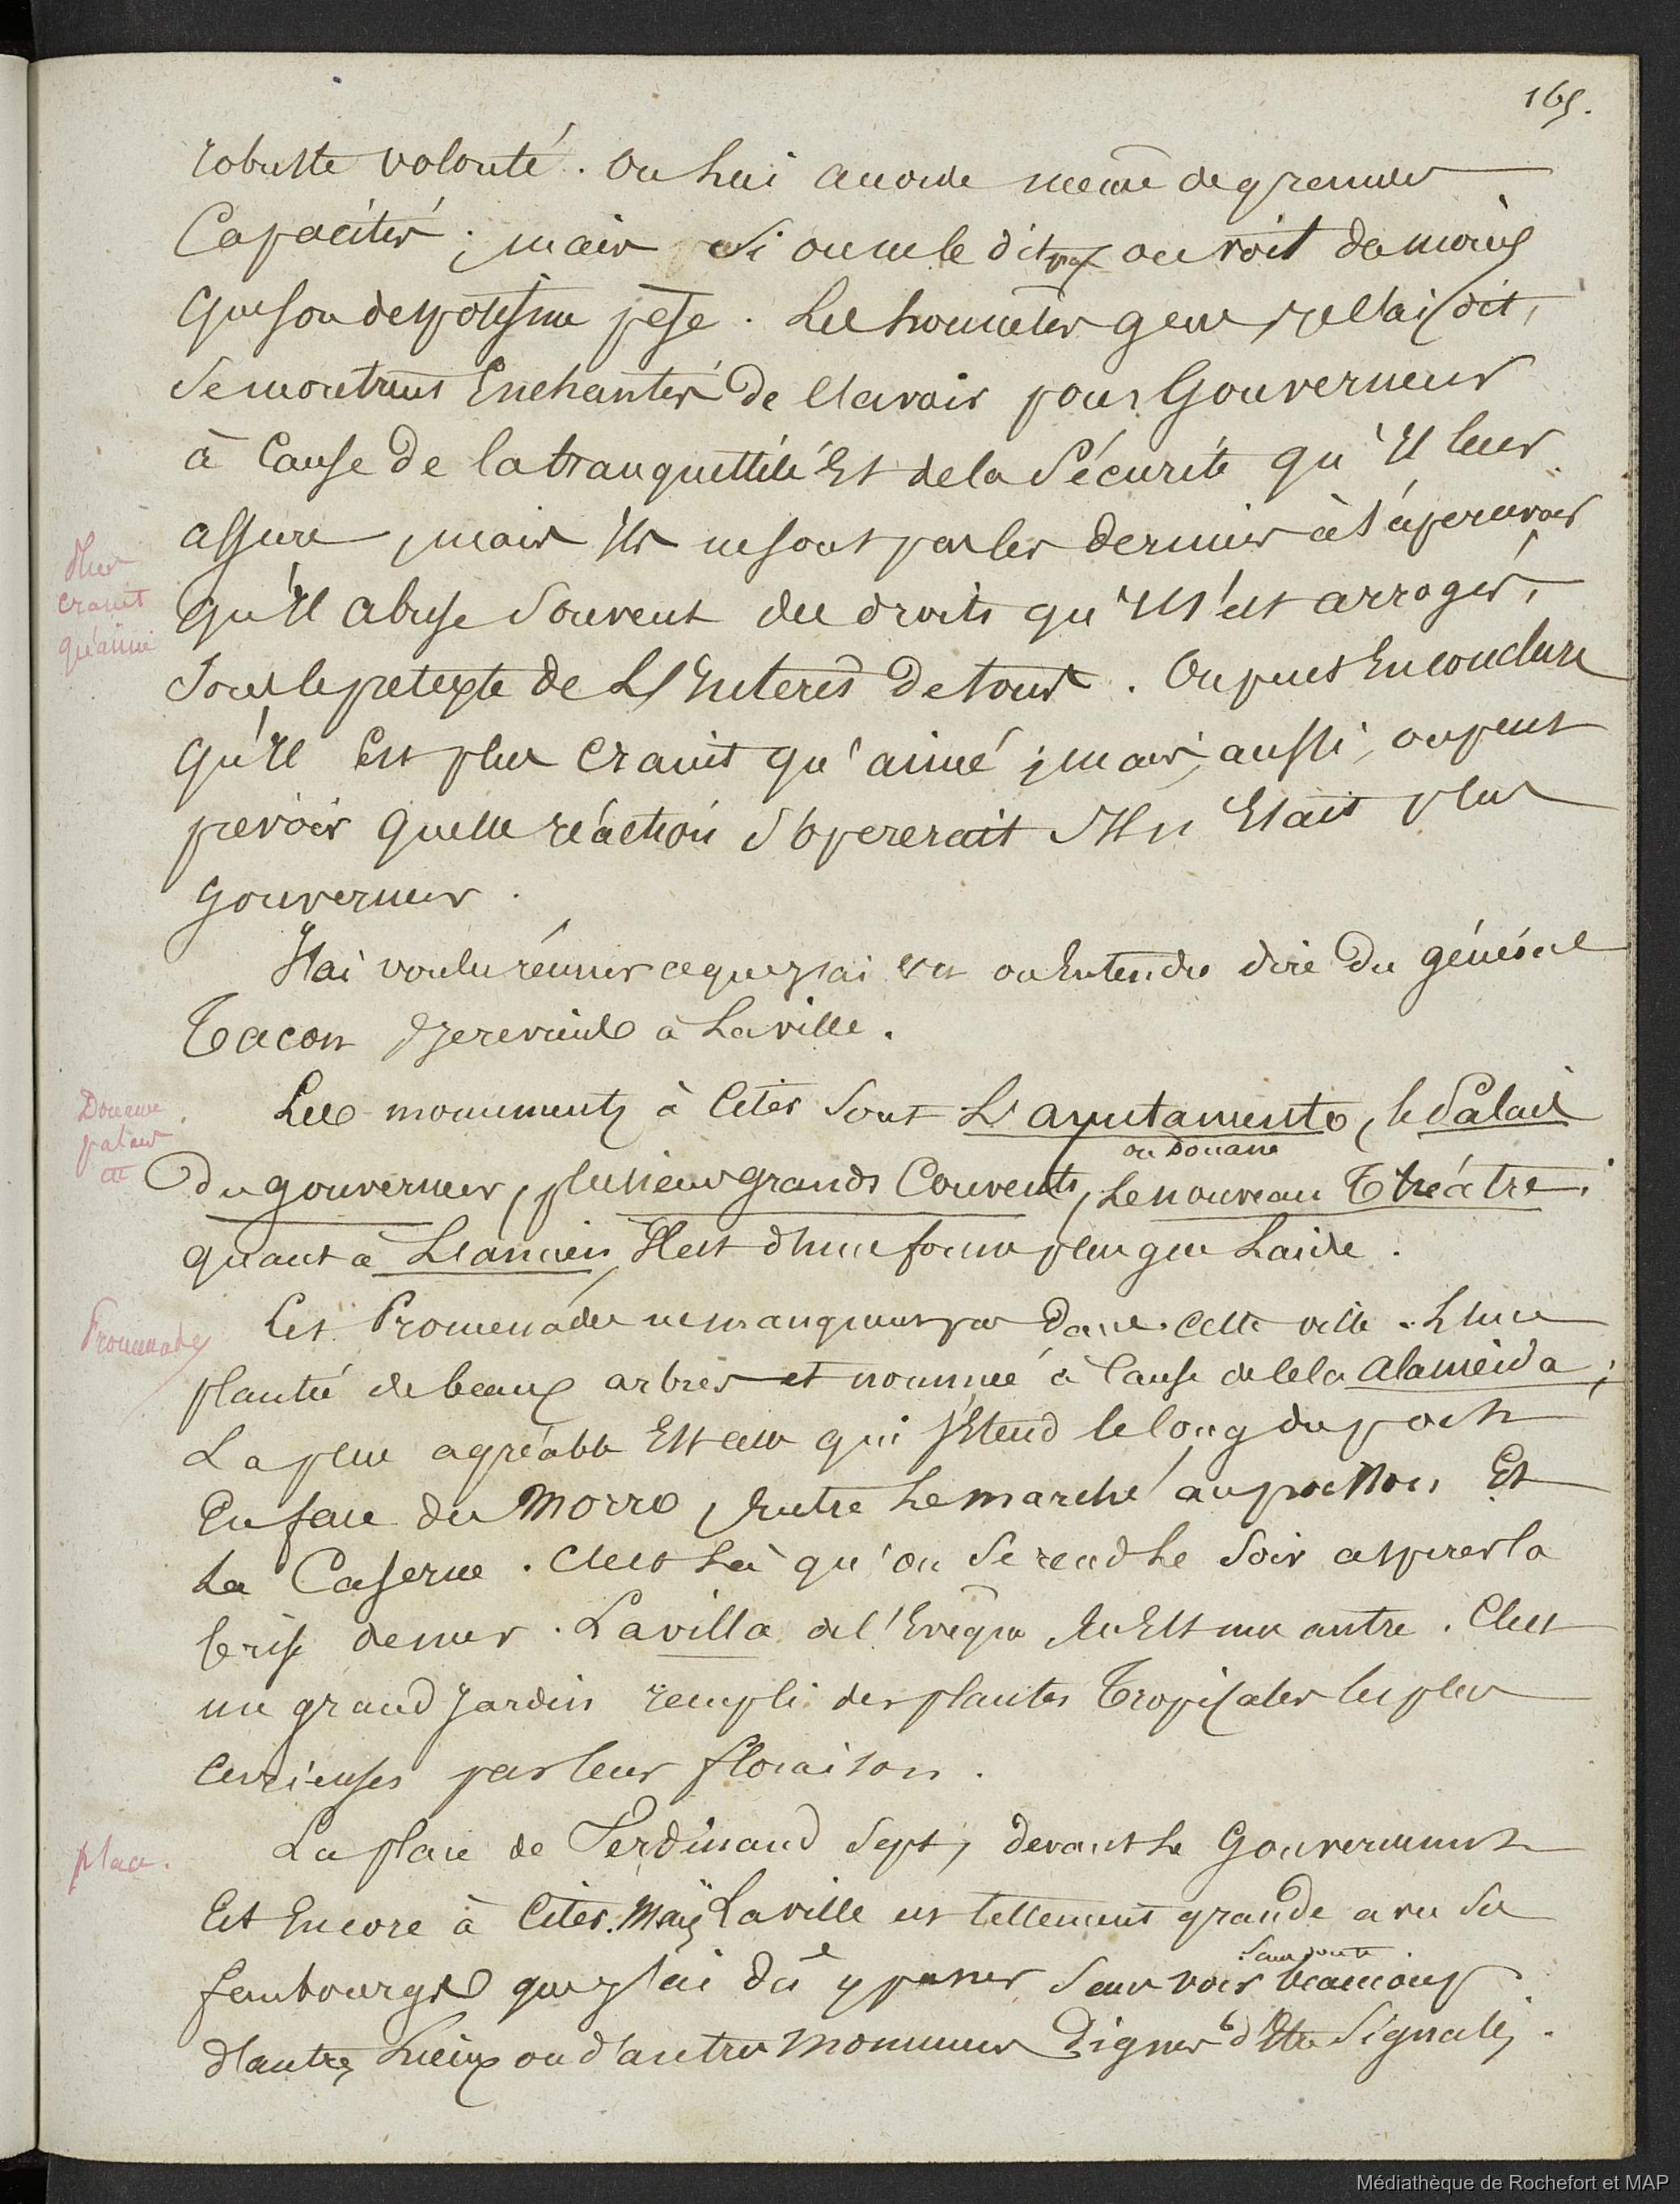 165.
robuste volonté. On lui accorde même de grandes
Capacités ; mais si on ne le dit pas on voit du moins
que son despotisme pèse. Les honnêtes gens, je l'ai dit,
se montrent Enchantés De l'avoir pour Gouverneur
à Cause De la tranquillité Et de la Sécurité qu'Il leur
assure, mais Ils ne sont pas les derniers à s'apercevoir
qu'Il abuse Souvent des droits qu'Il s'est arrogés,
Sous le pretexte de L'Enterès De tous. On peut En conclure
qu'Il Est plus Craint qu'aimé ; mais, aussi, on peut
prévoir quelle réaction s'opererait s'Il n'Etait plus
gouverneur.
J'ai voulu réunir ce que j'ai vu ou Entendu dire Du général
Tacon & je reviens à La ville.
Les monuments à Citer Sont L'ayuntamento, le Palais
ou Douane
Du gouverneur, plusieurs grands Couvents, Le nouveau Théâtre ;
quant à L'ancien, Il est d'une forme plus que Laide.
Les Promenades ne manquent pas Dans cette ville. L'une
plantée de beaux arbres et nommée à Cause de cela Alameida ;
La plus agréable Est celle qui s'Etend le long du port
En face du Morro, Entre Le marché au poisson Et
La Caserne. C'est Là qu'on Se rend Le Soir aspirer la
brise de mer. La villa de l'Evêque En Est une autre. C'est
un grand Jardin rempli des plantes Tropicales les plus
Curieuses par leur floraison.
La place de Ferdinand Sept, devant Le Gouvernement
Est Encore à Citer. Mais La ville est tellement grande avec Ses
faubourgs que j'ai dû y passer Sans voir beaucoup
Sans doute
d'autres Lieux ou d'autres Monumens Dignes d'Etre Signalés.
Plus
craint
qu'aimé
Douane
palais
etc
Promenades
place.
Médiathèque de Rochefort et MAP